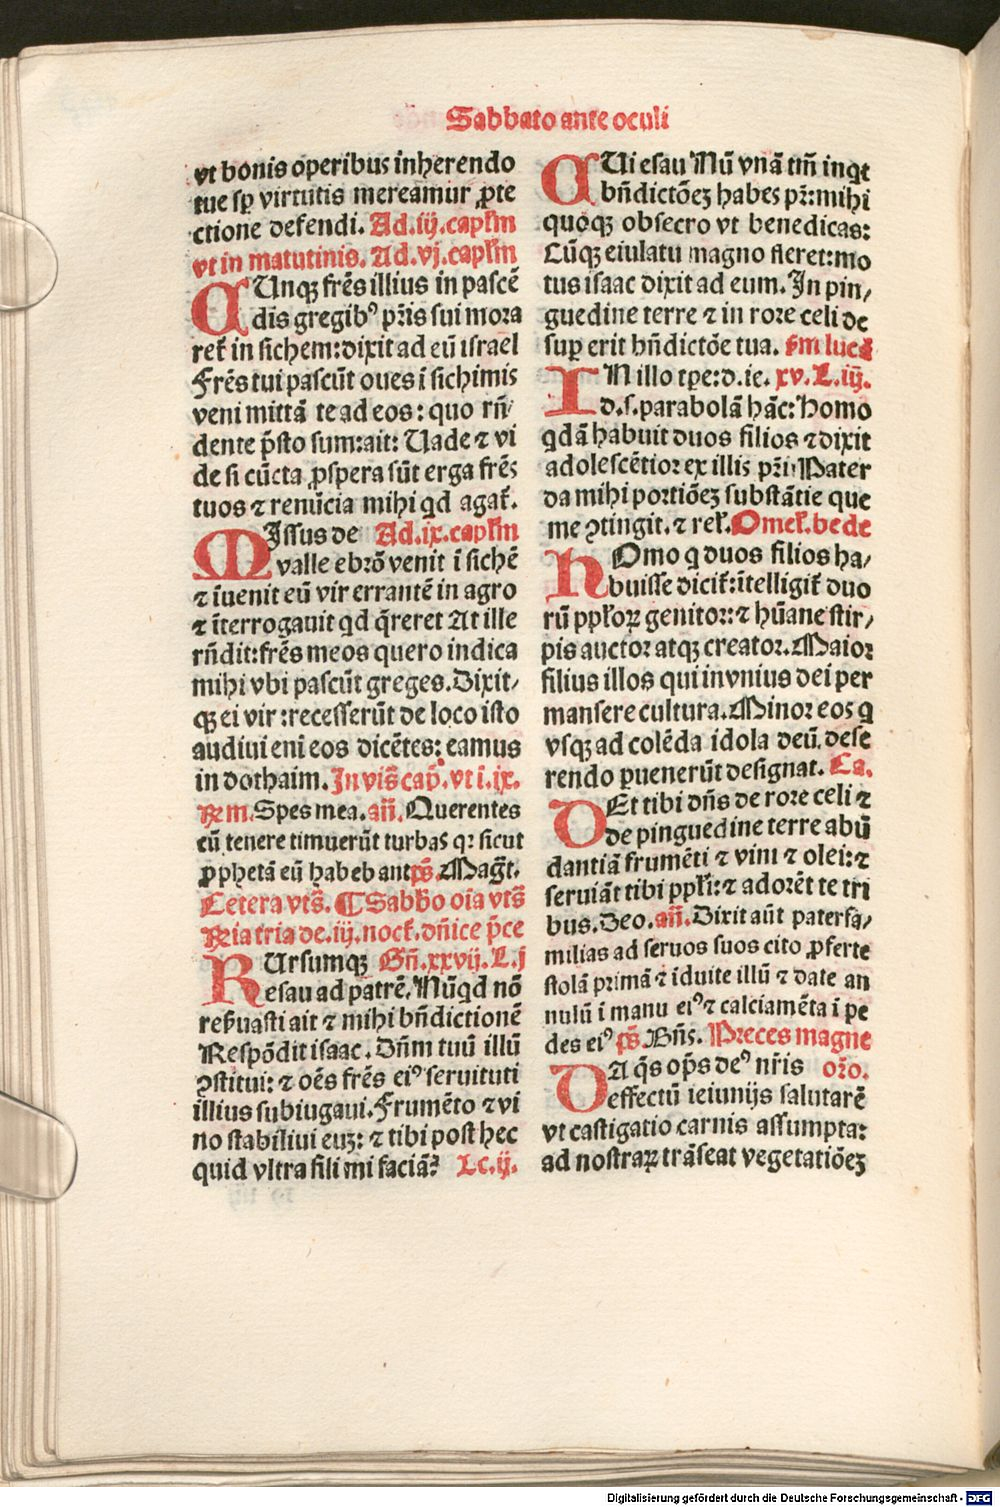 Sabbato ante oculi
vt bonis operibus inherendo
tue sp̱ virtutis mereamur ꝓte
ctione defendi. Ad.iij.capl'm
vt in matutinis. Ad.vj.capl'm
CUnqꝫ frēs illius in pascē
dis gregibꝰ pr̄is sui mora
ret᷑ in sichem:dixit ad eū israel
Frēs tui pascūt oues ī sichimis
veni mittā te ad eos: quo rn̄
dente p̄sto sum:ait: Uade ⁊ vi
de si cūcta ꝓspera sūt erga frēs
tuos ⁊ renūcia mihi qd agat᷑.
MIssus de Ad.ix.capl'm
valle ebrō venit ī sichē
⁊ īuenit eū vir errantē in agro
⁊ īterrogauit qd q̄reret At ille
rn̄dit:frēs meos quero indica
mihi vbi pascūt greges. Dixit/
qꝫ ei vir:recesserūt de loco isto
audiui eni eos dicētes: eamus
in dothaim. In vis̄ cap̄. vt i. ix.
R̄m. Spes mea. an̄. Querentes
eū tenere timuerūt turbas qꝛ sicut
ꝓphetā eū habebant ps̄. Mag̅t.
Cetera vts̄. ¶ Sabb'o oīa vts̄
R̄ia tria de.iij.noct᷑. dn̄ice p̄ce
RUrsumqꝫ Gn̄.xxvij.L.j
esau ad patrē. Nūqd nō
reẜuasti ait ⁊ mihi bn̄dictionē
Respōdit isaac. Dn̄m tuū illū
ꝯstitui: ⁊ oēs frēs eiꝰ seruituti
illius subiugaui. Frumēto ⁊ vi
no stabiliui euꝫ: ⁊ tibi post hec
quid vltra fili mi faciā? Lc.ij.
CUi esau Nū vnā tm̄ inqt
bn̄dictōeꝫ habes pr̄:mihi
quoqꝫ obsecro vt benedicas:
Cūqꝫ eiulatu magno fleret:mo
tus isaac dixit ad eum. In pin/
guedine terre ⁊ in rore celi de
suꝑ erit bn̄dictōe tua. ẜm lucā
IN illo tꝑe:d.ie. xv. L.iij.
d.s.parabolā hāc: Homo
qdā habuit duos filios ⁊ dixit
adolescētior ex illis pr̄i: Pater
da mihi portiōeꝫ substātie que
me ꝯtingit. ⁊ rel'. Omel'. bede
HOmo q duos filios ha/
buisse dicit᷑:ītelligit᷑ duo
rū ppl'oꝝ genitor: ⁊ hūane stir/
pis auctor atqꝫ creator. Maior
filius illos qui in vnius dei per
mansere cultura. Minor eos q
vsqꝫ ad colēda idola deū dese
rendo ꝑuenerūt designat. Ca.
DEt tibi dn̄s de rore celi ⁊
de pinguedine terre abū
dantiā frumēti ⁊ vini ⁊ olei: ⁊
seruiāt tibi ppl'i: ⁊ adorēt te tri
bus. Deo. an̄. Dixit aūt paterfa/
milias ad seruos suos cito ꝓferte
stolā primā ⁊ īduite illū ⁊ date an
nulū ī manu eiꝰ ⁊ calciamēta ī pe
des eiꝰ ps̄. Bn̄s. Preces magne
DA q̄s op̄s deꝰ nr̄is or̄o.
effectū ieiunijs salutarē
vt castigatio carnis assumpta:
ad nostraꝝ trāseat vegetatiōeꝫ
Digitalisierung gefördert durch die Deutsche Forschungsgemeinschaft - DFG